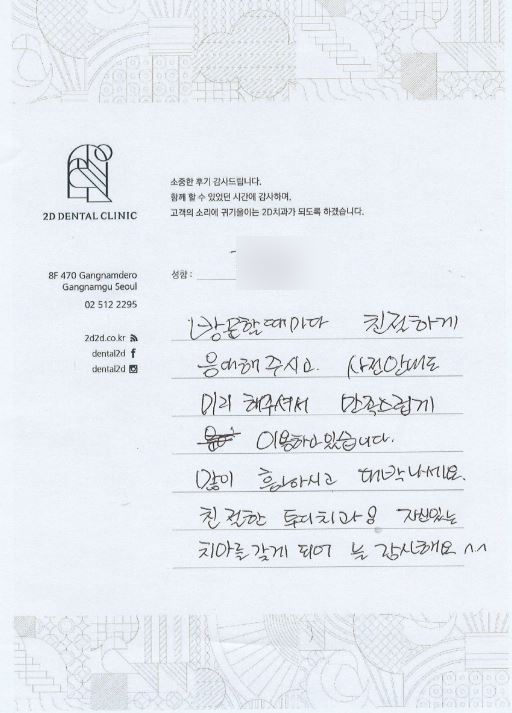 소중한 후기 감사드립니다.
함께 할 수 있었던 시간에 감사하며,
고객의 소리에 귀기울이는 2D치과가 되도록 하겠습니다.
2D DENTAL CLINIC
8F 470 Gangnamdero
Gangnamgu Seoul
02 512 2295
2d2d.co.kr
dental2d
dental2d
성함 :
방문할때마다 친절하게
응대해주시고. 사전안내도
미리 해주셔서 만족스럽게
이용하고있습니다.
많이 흥하시고 대박나세요.
친절한 투디치과용 자신있는
치아를 갖게 되어 늘 감사해요 ^^